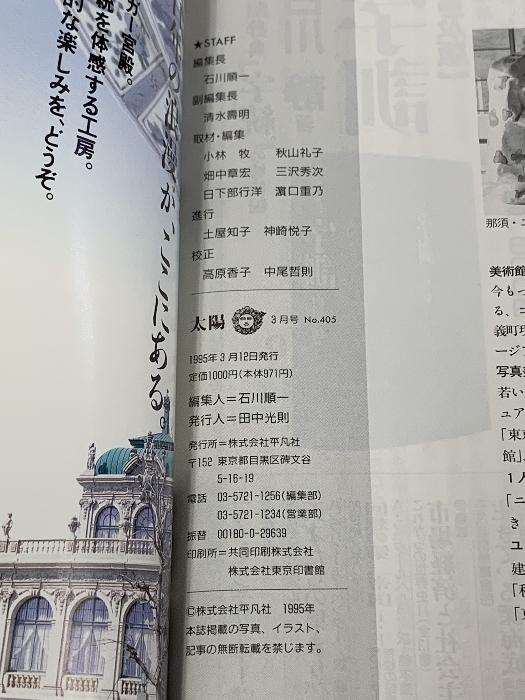 ★STAFF
編集長
石川順一
副編集長
清水壽明
取材・編集
小林 牧 秋山礼子
畑中章宏 三沢秀次
日下部行洋 濵口重乃
進行
土屋知子 神崎悦子
校正
高原香子 中尾哲則
太陽 3月号 No.405
1995年3月12日発行
定価1000円(本体971円)
編集人=石川順一
発行人=田中光則
発行所=株式会社平凡社
〒152 東京都目黒区碑文谷
5-16-19
電話 03-5721-1256(編集部)
03-5721-1234(営業部)
振替 00180-0-29639
印刷所=共同印刷株式会社
株式会社東京印書館
©株式会社平凡社 1995年
本誌掲載の写真、イラスト、
記事の無断転載を禁じます。
ガー宮殿。
統を体感する工房。
的な楽しみを、どうぞ。
の浪漫が、ここにある。
那須・ニ
美術館
今もっ
る、ニ
義町現
ージフ
写真美
若い
ュア
「東京
館」、
1人
「ニ
き
ユ
建